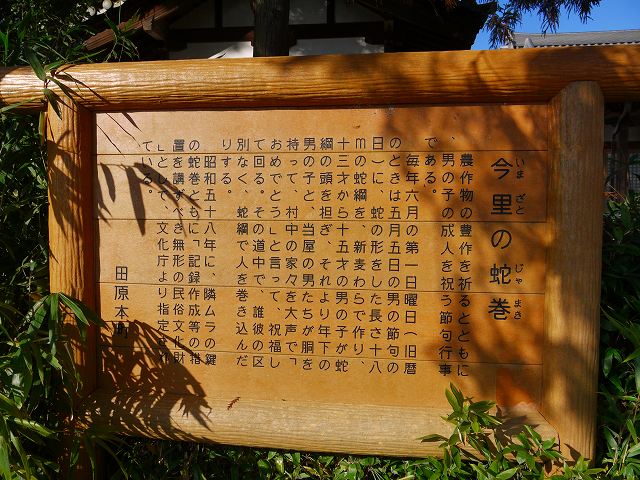 いま ざと じゃ まき
今里の蛇巻
農作物の豊作を祈るとともに
、男の子の成人を祝う節句行事
である。
毎年六月の第一日曜日（旧暦
のときは五月五日の男の節句の
日）に、蛇の形をした長さ十八
ｍの蛇綱を新麦わらで作り、
十三才から十五才の男の子が蛇
綱の頭を担ぎ、それより年下の
男の子と、当屋の男たちが胴を
持って、村中の家々を大声で「
おめでとう」と言って、祝福し
て回る。その道中で、誰彼の区
別なく、蛇綱で人を巻き込んだ
りする。
昭和五十八年に、隣ムラの鍵
の蛇巻とともに「記録作成等の措
置を講ずべき無形の民俗文化財
」として、文化庁より指定され
ている。
田原本町